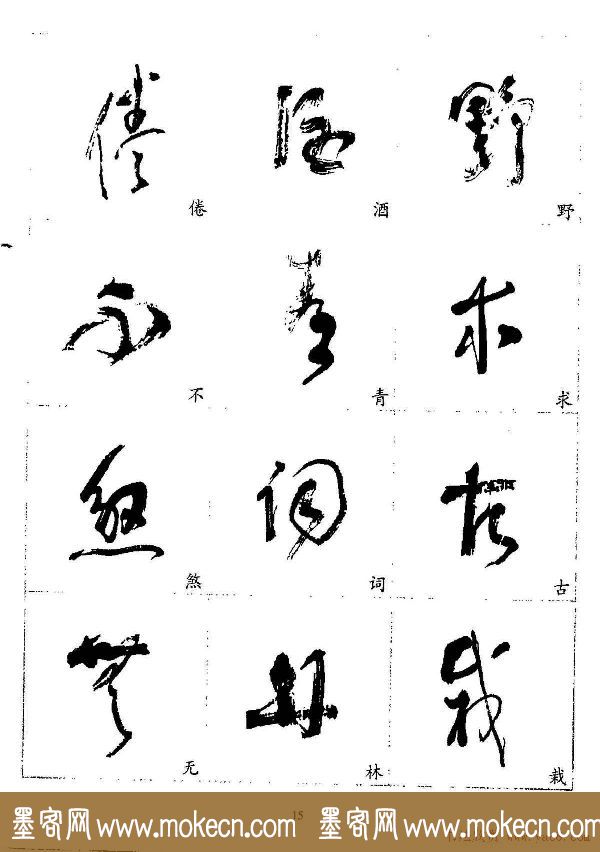 倦 酒 野
不 青 求
煞 词 古
无 林 栽
15
墨客网 www.mokecn.com 墨客网 www.mokecn.com